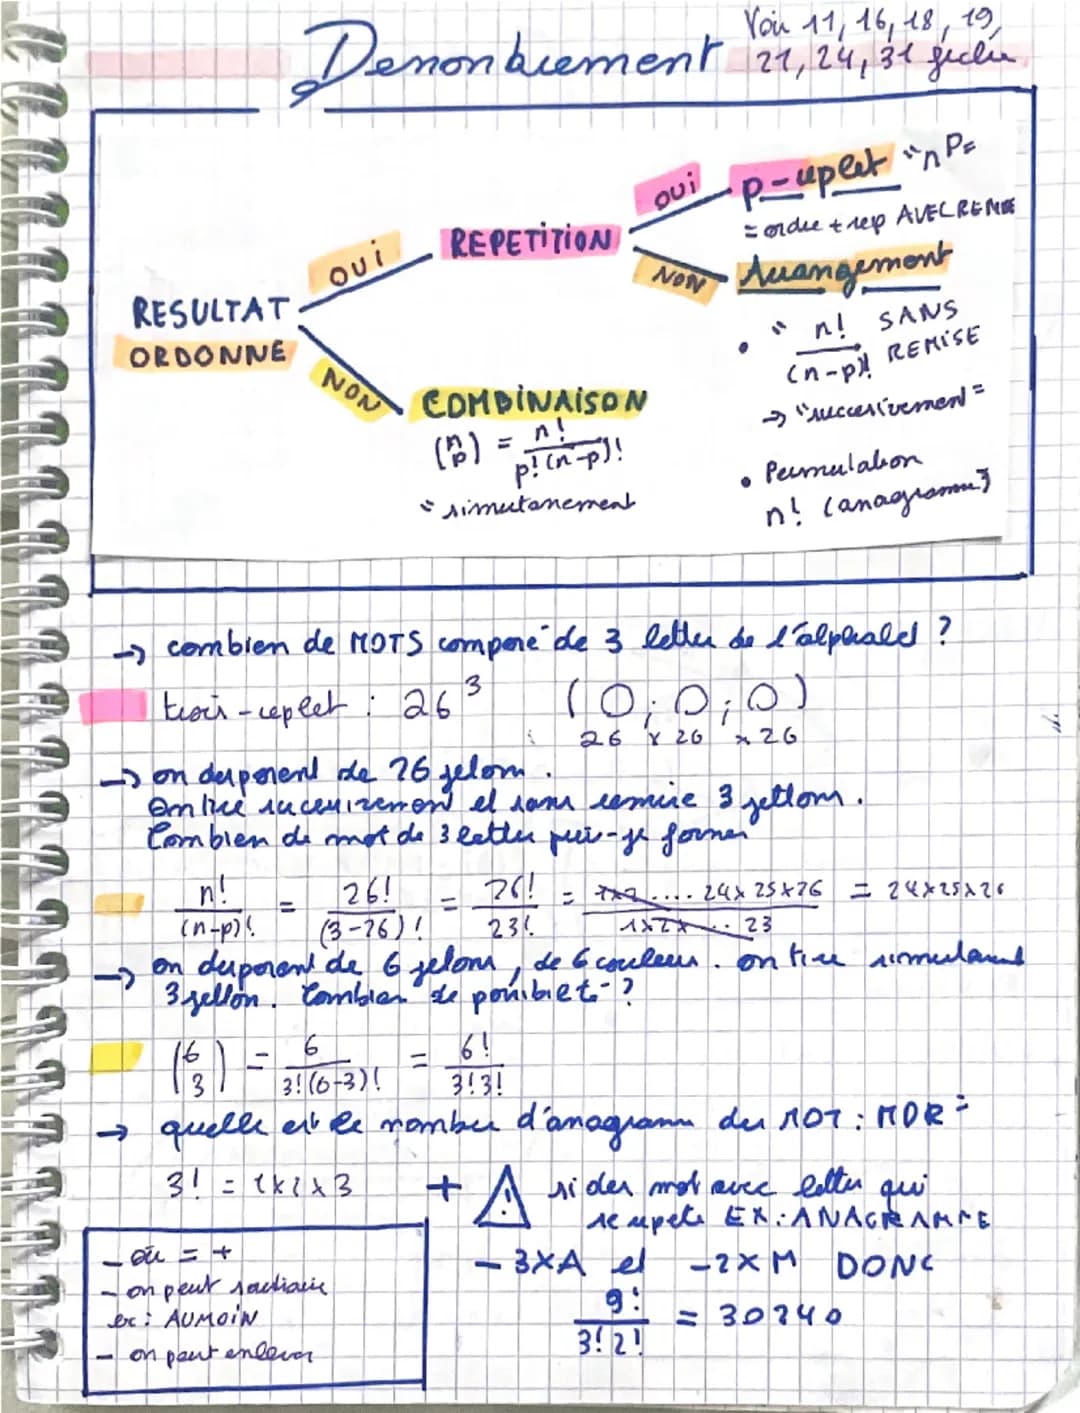 Denombrement
Voir 11, 16, 18, 19,
21, 24, 31 fiche
RESULTAT
ORDONNE
OUI
REPETITION
OUI
p-uplet "nP"
= ordre + rep AVEC REMISE
NON
Arrangement
• " n! / (n-p)! SANS REMISE
→ "successivement"
• Permutation
n! (anagramme)
NON
COMBINAISON
(n p) = n! / p!(n-p)!
" simutanement
→ combien de MOTS composé de 3 lettre de l'alphabet ?
trois-uplet : 26³ (O; O; O)
26 x 26 x 26
→ on disposent de 26 jetom.
On tire sucessivement et sans remise 3 jettom.
Combien de mot de 3 lettre puis-je former
n! / (n-p)! = 26! / (3-26)! = 26! / 23! = 1x2.... 24x25x26 / 1x2x... 23 = 24x25x26
→ on disposent de 6 jetons, de 6 couleurs. on tire simultanent
3 jetton. Combien de possibiet- ?
(6 3) = 6 / 3!(6-3)! = 6! / 3!3!
→ quelle est le nombre d'anagramm du MOT : MDR =
3! = 1x2x3
+ ⚠ si des mot avec lettre qui
se repete EX : ANAGRAMME
- 3xA et -2xM DONC
9! / 3!2! = 30240
- ou = +
- on peut
ex : AUMOIN
- on peut enlever